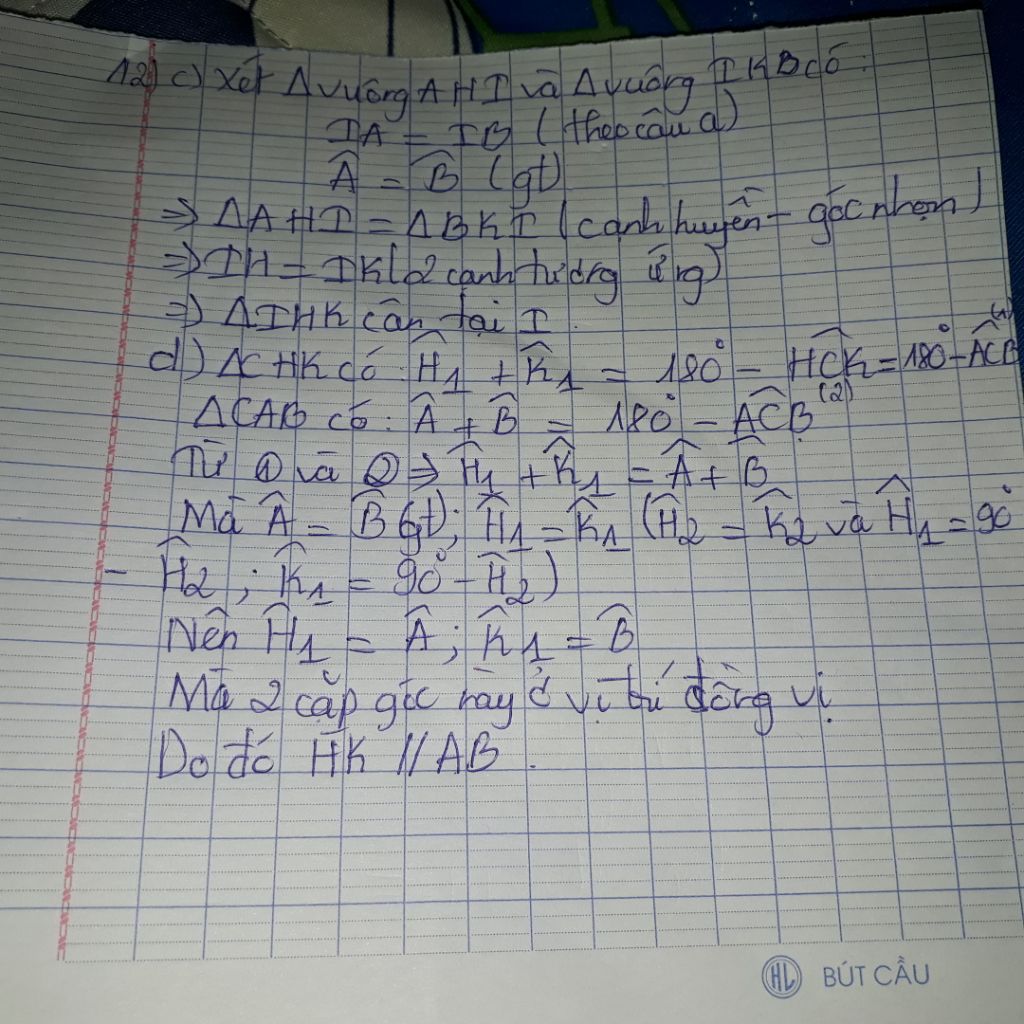 12) c) Xét Δvuông AHI và Δvuông IKB có:
IA = IB (theo câu a)
Â = B̂ (gt)
⇒ ΔAHI = ΔBKI (cạnh huyền - góc nhọn)
⇒ IH = IK (2 cạnh tương ứng)
⇒ ΔIHK cân tại I.
d) ΔCHK có: Ĥ1 + K̂1 = 180° - HCK̂ = 180° - ACB̂ (1)
ΔCAB có: Â + B̂ = 180° - ACB̂ (2)
Từ ① và ② ⇒ Ĥ1 + K̂1 = Â + B̂
Mà Â = B̂ (gt); Ĥ1 = K̂1 (Ĥ2 = K̂2 và Ĥ1 = 90°
- Ĥ2; K̂1 = 90° - Ĥ2)
Nên Ĥ1 = Â; K̂1 = B̂
Mà 2 cặp góc này ở vị trí đồng vị
Do đó HK // AB.
HL BÚT CẦU